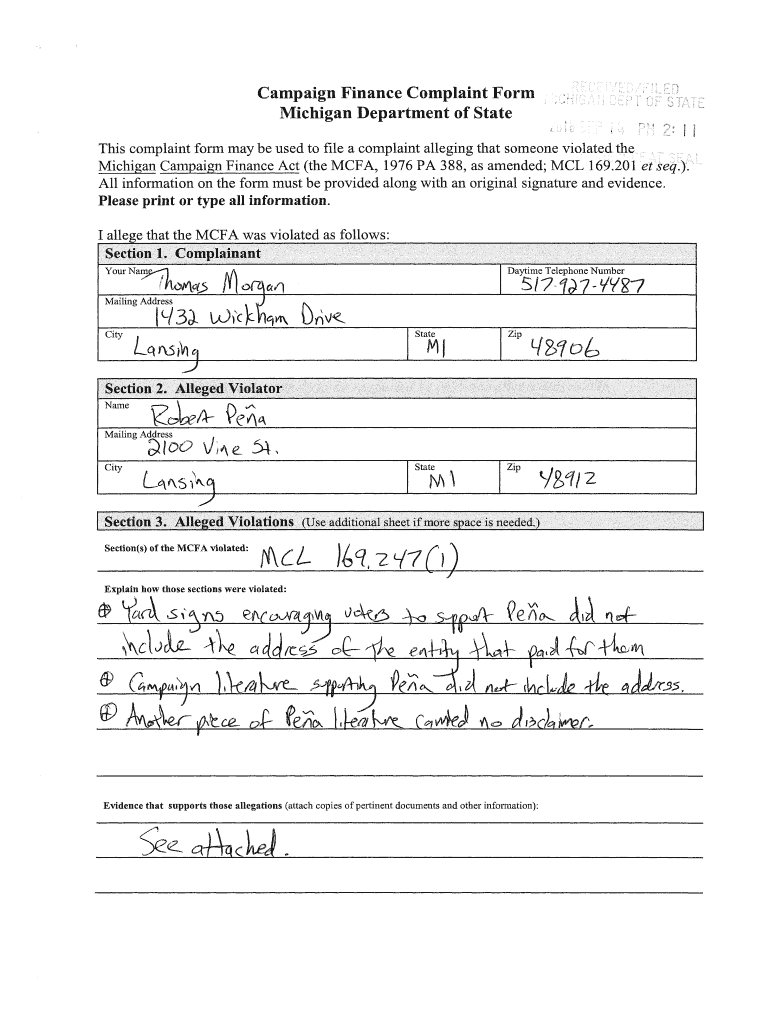 Campaign Finance Complaint Form
Michigan Department of State
RECEIVED/FILED
MICHIGAN DEPT OF STATE
PM 2:11
This complaint form may be used to file a complaint alleging that someone violated the
Michigan Campaign Finance Act (the MCFA, 1976 PA 388, as amended; MCL 169.201 et seq.).
All information on the form must be provided along with an original signature and evidence.
Please print or type all information.
I allege that the MCFA was violated as follows:
Section 1. Complainant
Your Name Daytime Telephone Number
Thomas Morgan 517-927-4487
Mailing Address
1432 Wickham Drive
City State Zip
Lansing MI 48906
Section 2. Alleged Violator
Name
Robert Peña
Mailing Address
2100 Vine St.
City State Zip
Lansing MI 48912
Section 3. Alleged Violations (Use additional sheet if more space is needed.)
Section(s) of the MCFA violated: MCL 169.247(1)
Explain how those sections were violated:
Yard signs encouraging voters to support Peña did not
include the address of the entity that paid for them
Campaign literature supporting Peña did not include the address.
Another piece of Peña literature carried no disclaimer.
Evidence that supports those allegations (attach copies of pertinent documents and other information):
See attached.